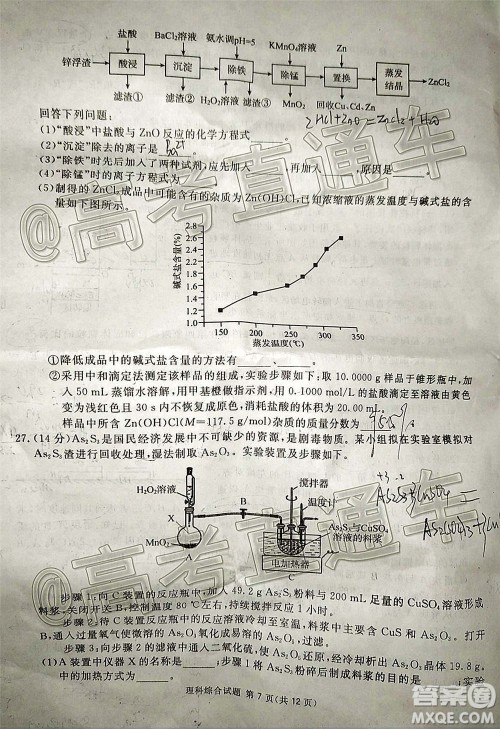 盐酸 BaCl2溶液 氨水调pH=5 KMnO4溶液 Zn
锌浮渣 酸浸 沉淀 除铁 除锰 置换 蒸发结晶 ZnCl2
滤渣① 滤渣② H2O2溶液 滤渣③ MnO2 回收Cu、Cd、Zn
回答下列问题:
(1)“酸浸”中盐酸与ZnO反应的化学方程式
2HCl+ZnO=ZnCl2+H2O
(2)“沉淀”除去的离子是
(3)“除铁”时先后加入了两种试剂,应先加入____,再加入____,原因是____。
(4)“除锰”时的离子方程式为
(5)制得的ZnCl2成品中可能含有的杂质为Zn(OH)Cl,已知浓缩液的蒸发温度与碱式盐的含
量如下图所示。
碱式盐含量(%)
2.8
2.6
2.4
2.2
2.0
1.8
1.6
1.4
1.2
1.0
150 200 250 300 350
蒸发温度(℃)
①降低成品中的碱式盐含量的方法有____、____。
②采用中和滴定法测定该样品的组成,实验步骤如下:取10.0000g样品于锥形瓶中,加
入50 mL蒸馏水溶解,用甲基橙做指示剂,用0.1000 mol/L的盐酸滴定至溶液由黄色
变为浅红色且30 s内不恢复成原色,消耗盐酸的体积为20.00 mL。
样品中所含Zn(OH)Cl(M=117.5 g/mol)杂质的质量分数为
27.(14分)As2S3是国民经济发展中不可缺少的资源,是剧毒物质。某小组拟在实验室模拟对
As2S3渣进行回收处理,湿法制取As2O3。实验装置及步骤如下。
H2O2溶液
搅拌器
温度计
X
B
MnO2
A
As2S3与CuSO4
溶液的料浆
电加热器
C
步骤1:向C装置的反应瓶中,加入49.2 g As2S3粉料与200 mL足量的CuSO4溶液形成
料浆,关闭开关B,控制温度80℃左右,持续搅拌反应1小时。
步骤2:待C装置的反应瓶中的反应溶液冷却至室温,料浆中主要含CuS和As2O3。打开
B,通入过量氧气使微溶的As2O3氧化成易溶的As2O5,过滤。
步骤3:向步骤2的滤液中通入二氧化硫,使As2O5还原,经冷却结晶得到As2O3晶体19.8 g。
(1)A装置中仪器X的名称是____;步骤1将As2S3粉碎后制成料浆的目的是____;实验
中的加热方式为____。
理科综合试题 第7页(共12页)
@高考直通车
@高考直通车
@高考直通车
答案圈
MXQE.COM